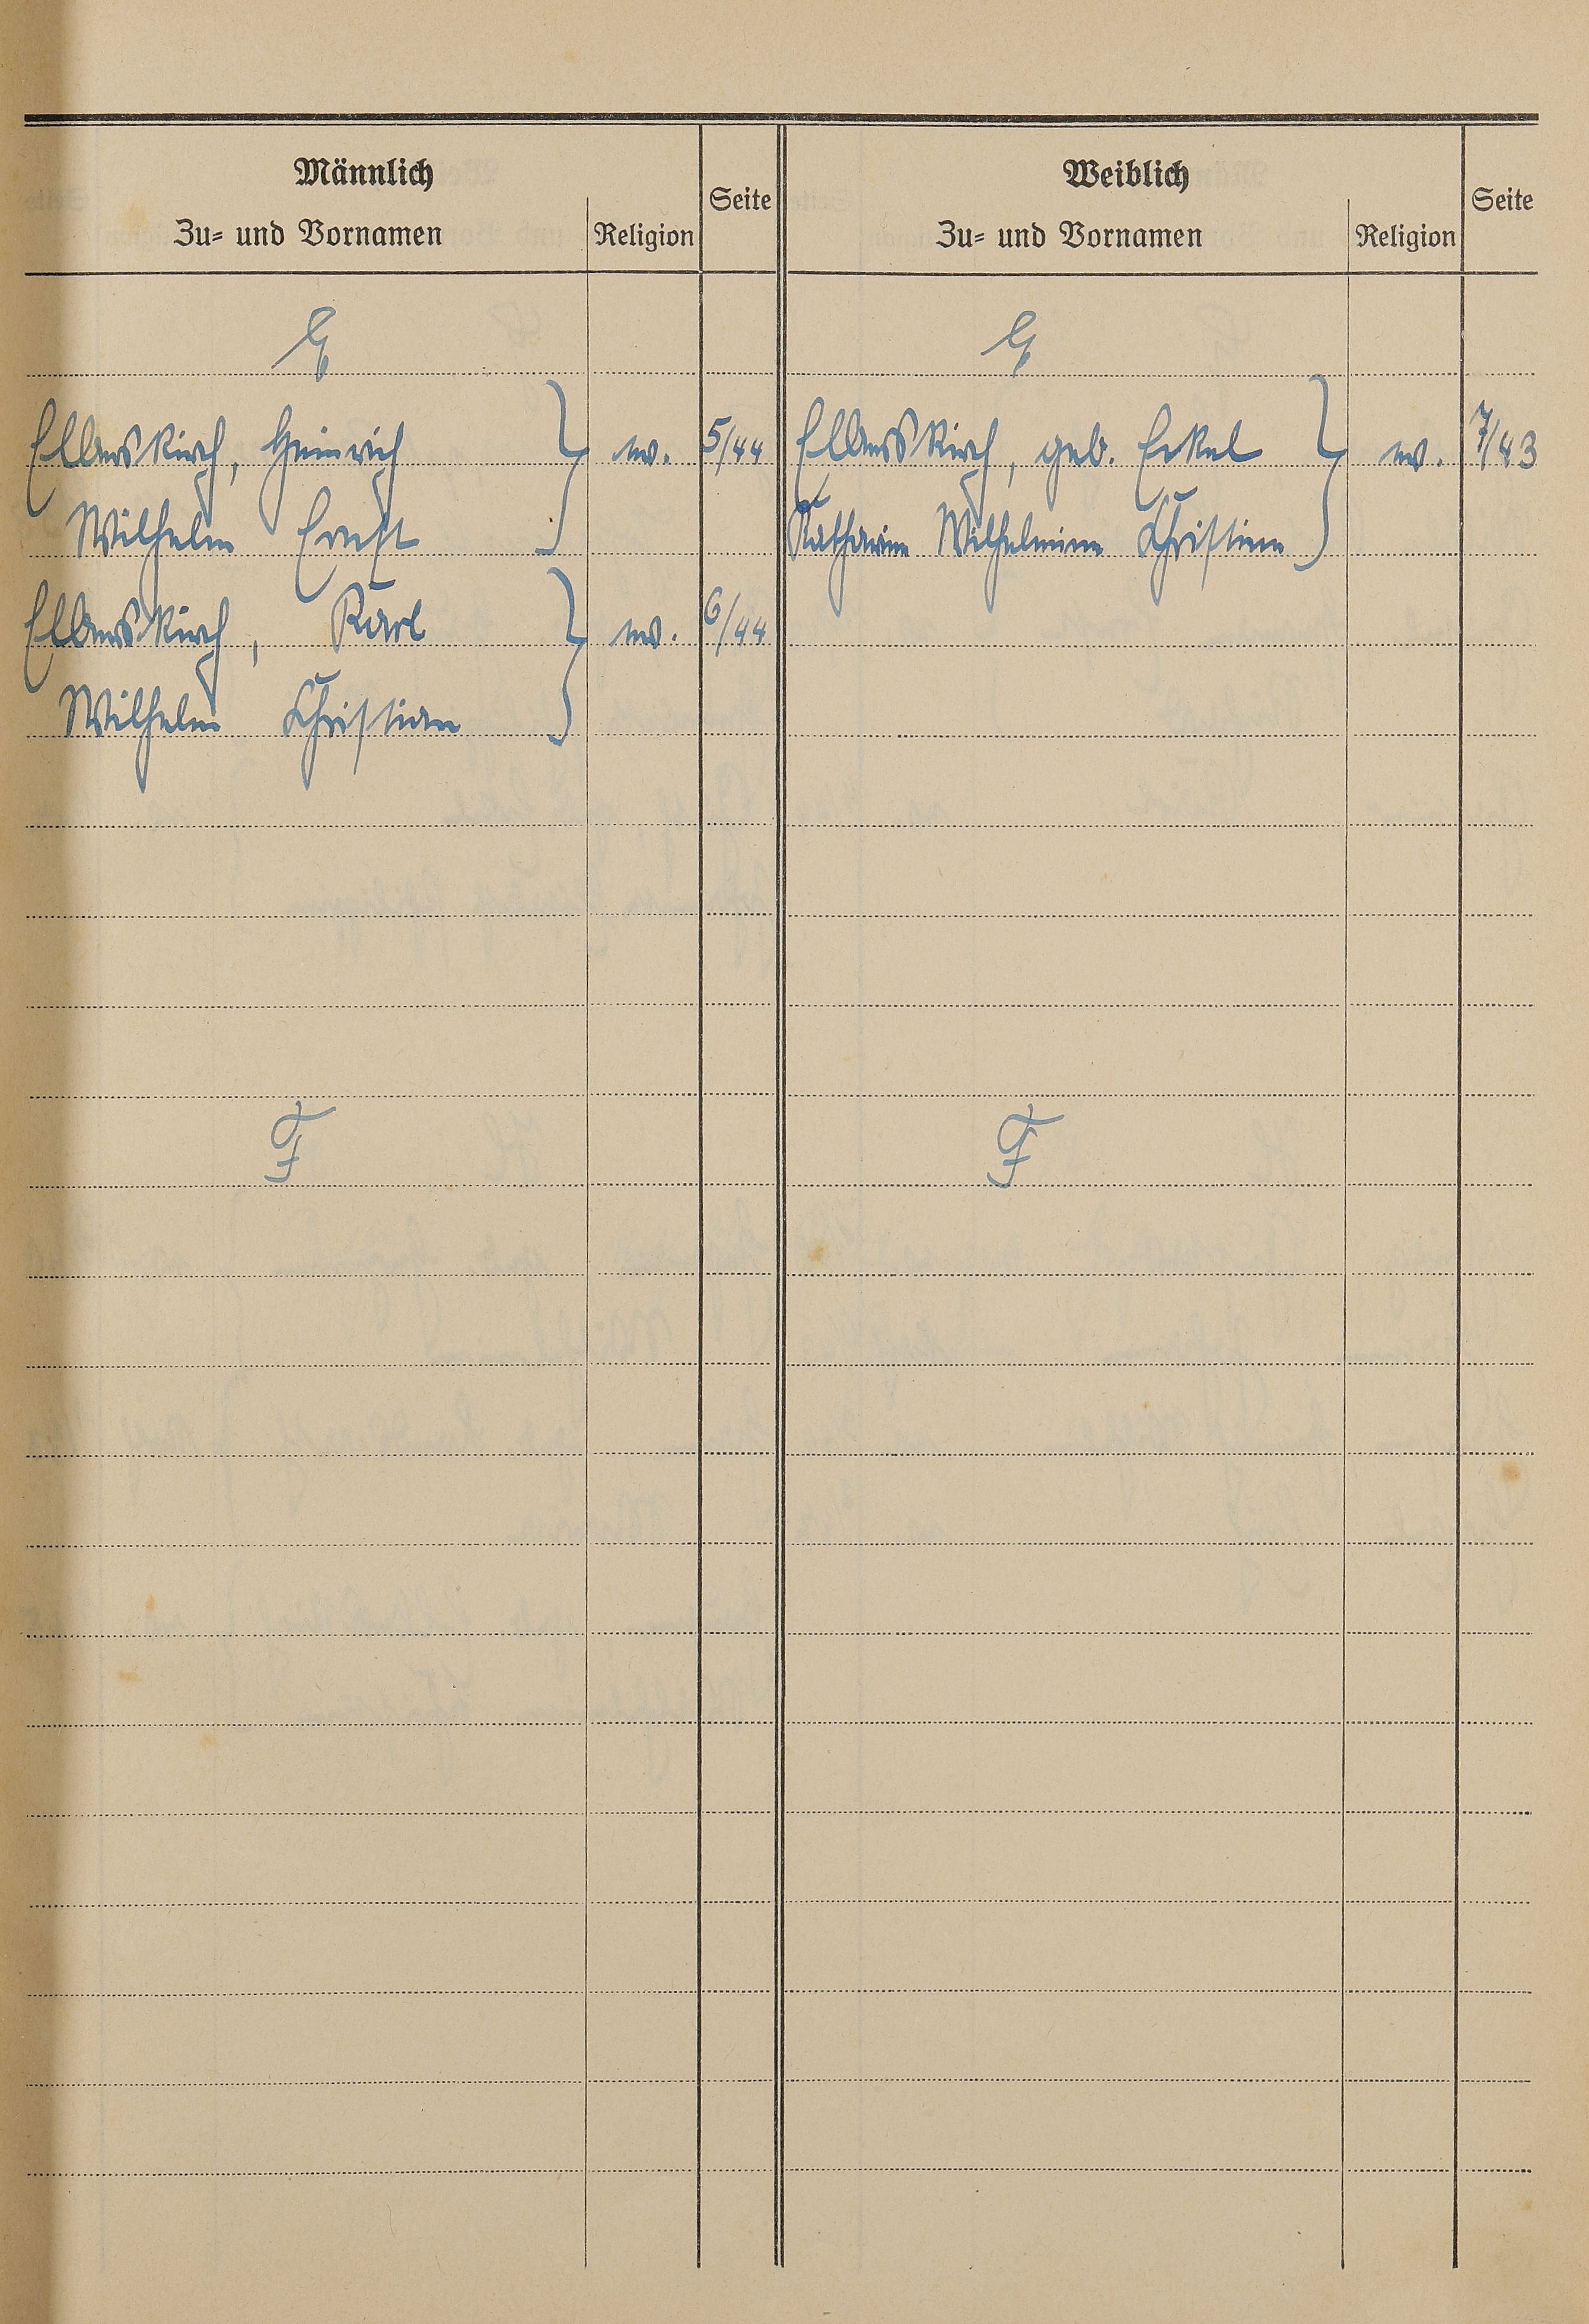 Männlich
Zu= und Vornamen
Religion
Seite
Weiblich
Zu= und Vornamen
Religion
Seite
E
E
Elberskirch, Heinrich ev. 5/44
Wilhelm Ernst
Elberskirch, geb. Eckel ev. 7/43
Katharine Wilhelmine Christine
Elberskirch, Karl ev. 6/44
Wilhelm Christian
F
F